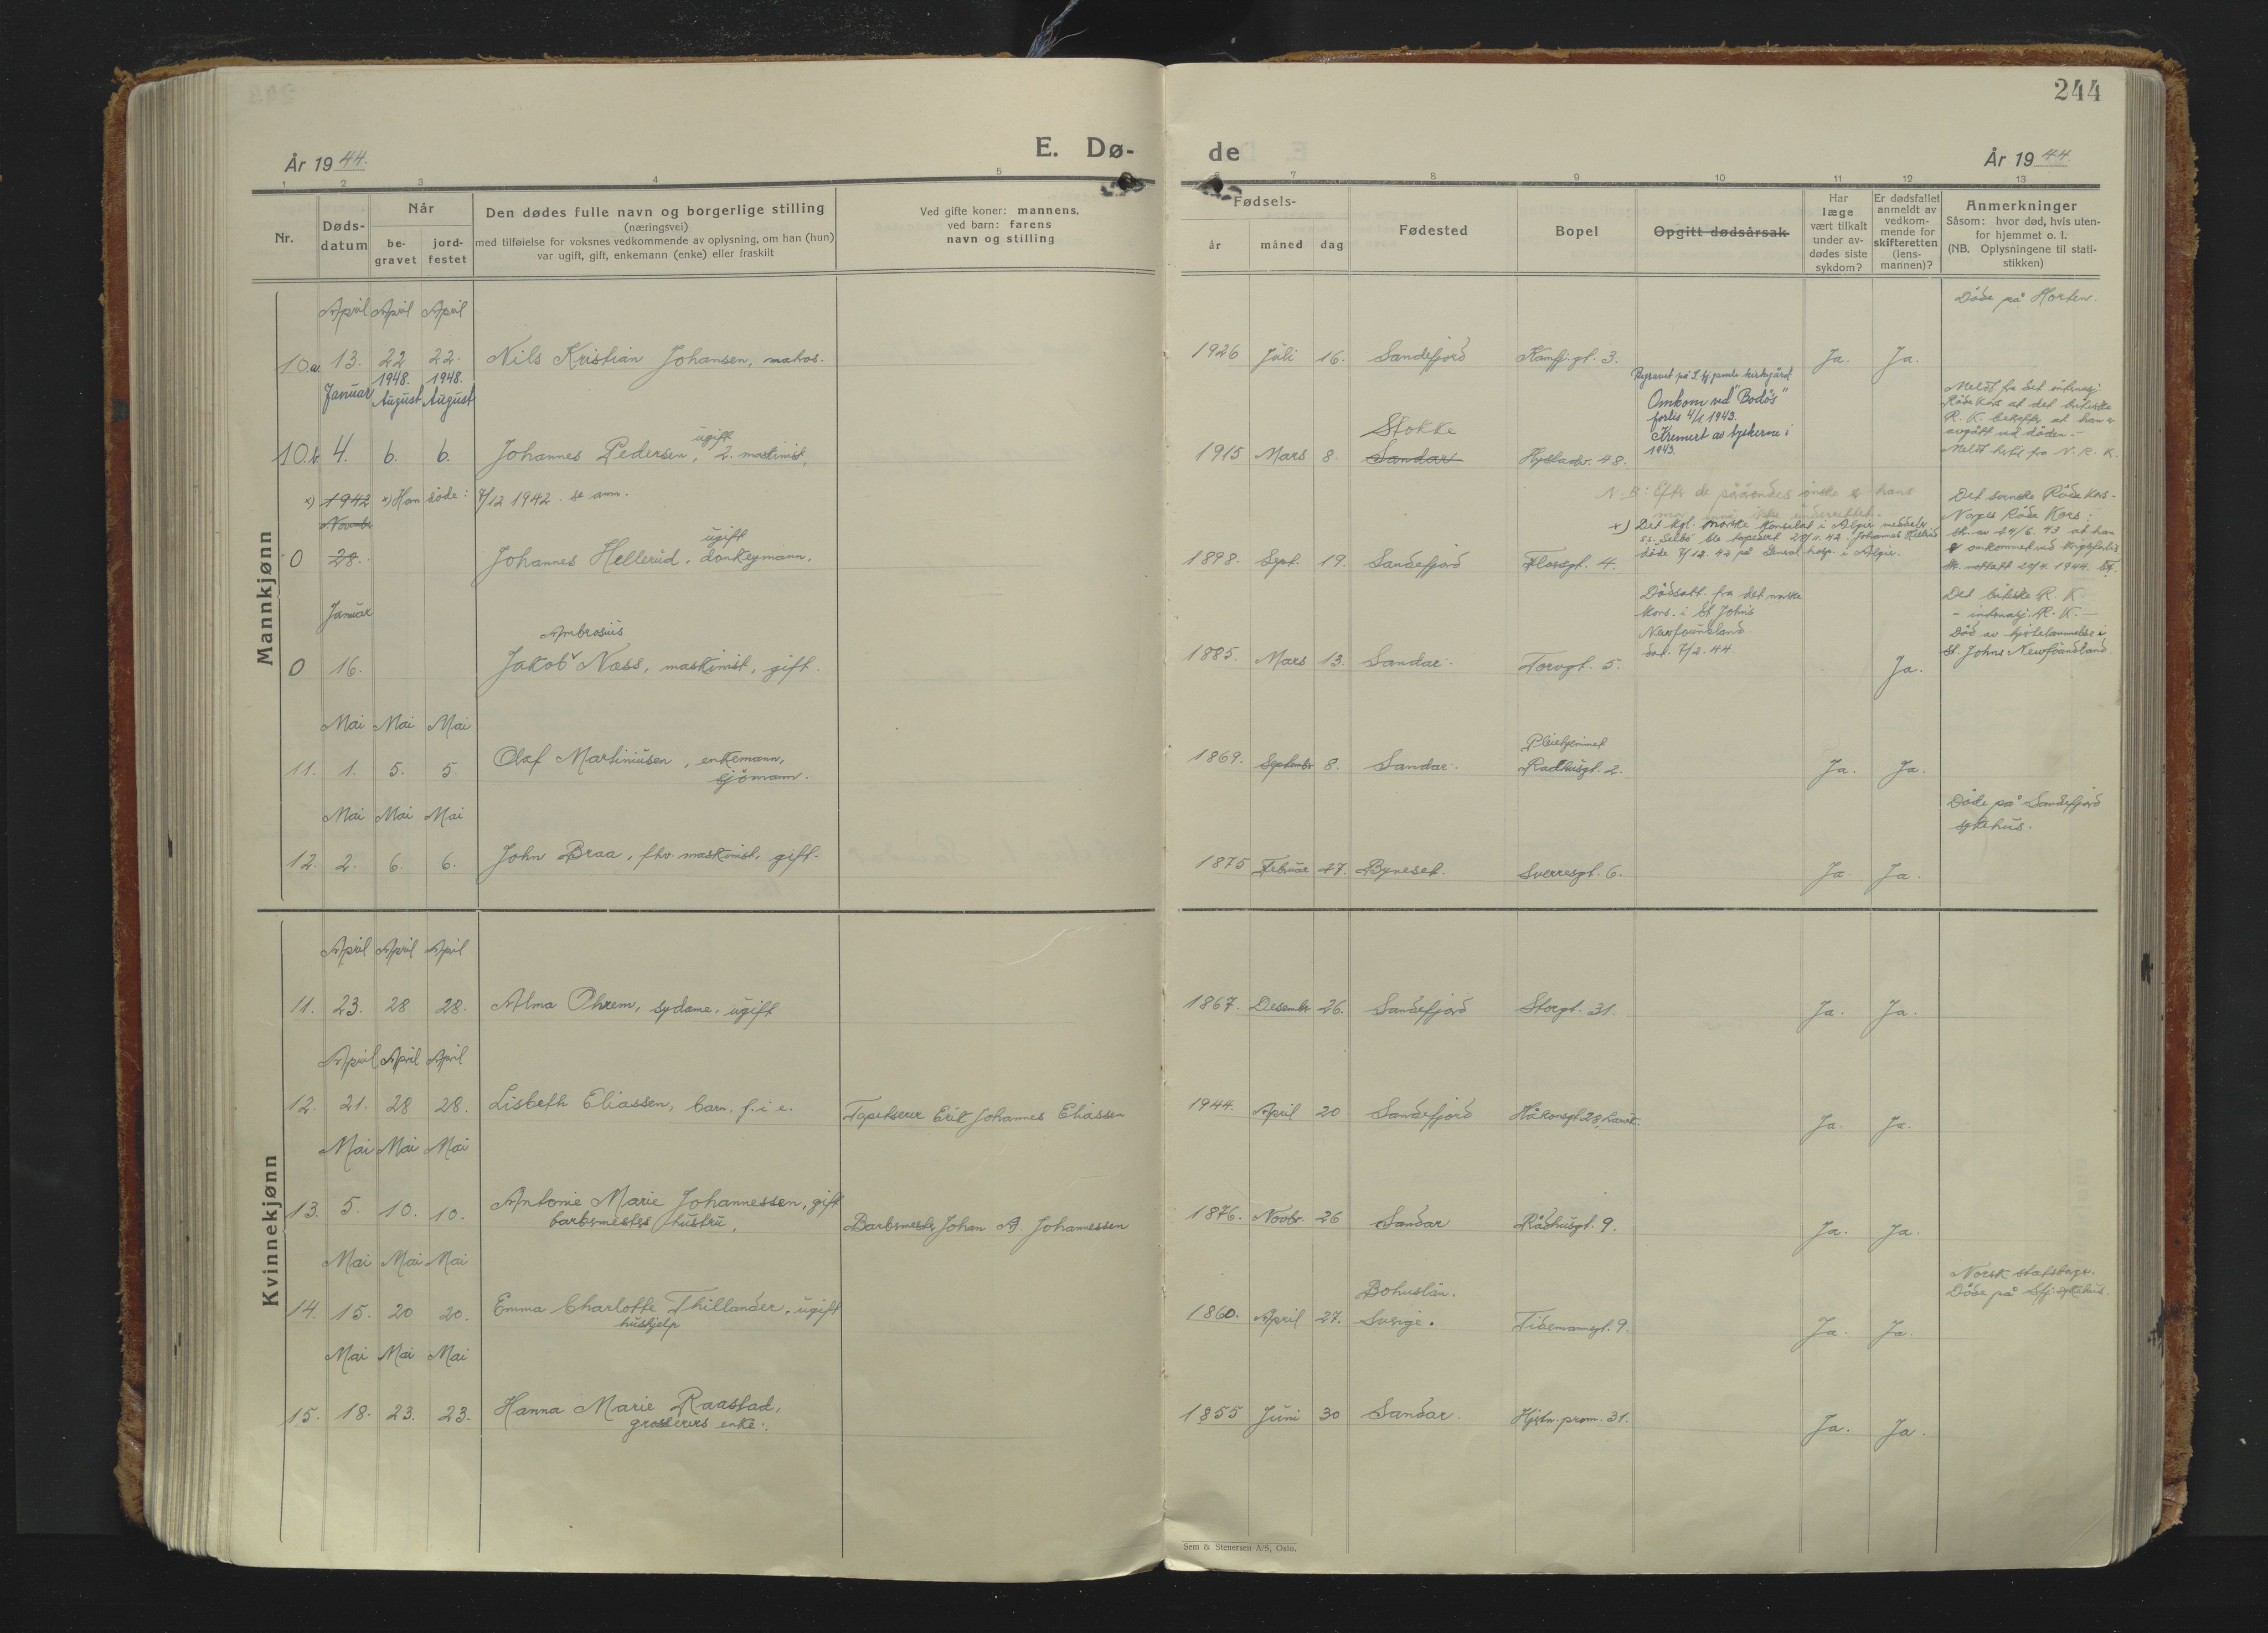 244
År 19 44.
E. Dø-
de
År 19 44.
1 2 3 4 5 6 7 8 9 10 11 12 13
Nr.
Døds-
datum
Når
be-
gravet
jord-
festet
Den dødes fulle navn og borgerlige stilling
(næringsvei)
med tilføielse for voksnes vedkommende av oplysning, om han (hun)
var ugift, gift, enkemann (enke) eller fraskilt
Ved gifte koner: mannens,
ved barn: farens
navn og stilling
Fødsels-
år måned dag
Fødested
Bopel
Opgitt dødsårsak
Har
læge
vært tilkalt
under av-
dødes siste
sykdom?
Er dødsfallet
anmeldt av
vedkom-
mende for
skifteretten
(lens-
mannen)?
Anmerkninger
Såsom: hvor død, hvis uten-
for hjemmet o. l.
(NB. Oplysningene til stati-
stikken)
Mannkjønn
April April April
Döde på Horten.
10.a. 13. 22 22. Nils Kristian Johansen, matros. 1926 Juli 16. Sandefjord Kamfj.gt. 3. Ja. Ja.
1948. 1948.
Januar August August
Begravet på S.fj gamle kirkegård
Omkom ved "Bodös"
forlis 4/1 1943.
Kremert av tyskerne i
1943.
Meldt fra det internasj.
Röde Kors at det britiske
R. K. bekrefter at han er
avgått ved döden. -
Meldt hertil fra N. R. K.
Stokke
ugift
10.b 4. 6. 6. Johannes Pedersen, 2. maskinist, 1915 Mars 8. Sandar Hystadv. 48.
x) 1942 x) Han döde: 7/12 1942. se anm.
Novembr
N.B: Efter de pårørendes ønske er hans
mor ikke underrettet.
x) Det kgl. norske Konsulat i Algier meddeler
ss. Selbö ble torpedert 28/11.42. Johannes Hellerud
döde 7/12. 42 på General hosp. i Algier.
Det svenske Röde Kors -
Norges Röde Kors:
Skr. av 24/6. 43 at han
er omkommet ved krigsforlis
Skr. mottatt 20/4. 1944.
ugift
0 28. Johannes Hellerud, donkeymann. 1898. Sept. 19. Sandefjord Florsgt. 4.
Januar
Dödsatt. fra det norske
Kons. i St. John's
Newfoundland.
dat. 7/2. 44.
Det britiske R. K.
- internasj. R. K. -
Död av hjertelammelse i
St. Johns Newfoundland.
Ambrosius
0 16. Jakob Næss, maskinist, gift. 1885. Mars 13. Sandar. Torvgt. 5. Ja.
Mai Mai Mai
Pleiehjemmet
11. 1. 5. 5. Olaf Martiniusen, enkemann, 1869. Septembr 8. Sandar. Radhusgt. 2. Ja. Ja.
sjömann.
Mai Mai Mai
Döde på Sandefjord
sykehus.
12. 2. 6. 6. John Braa, fhv. maskinist, gift. 1875 Februar 27. Byneset. Sverresgt. 6. Ja. Ja.
Kvinnekjønn
April April April
11. 23. 28 28. Alma Ohrem, sydame, ugift 1867. Desembr 26. Sandefjord Storgt. 31. Ja. Ja.
April April April
12. 21. 28 28. Lisbeth Eliassen, barn. f. i e. Tapetserer Erik Johannes Eliassen 1944. April 20 Sandefjord Håkonsgt 28, Ja. Ja.
Mai Mai Mai
13. 5. 10. 10. Antonie Marie Johannessen, gift 1876. Novbr. 26 Sandar Rådhusgt. 9. Ja. Ja.
barbermesters hustru. Barbermester Johan A. Johannessen
Mai Mai Mai
Norsk statsborger.
Döde på Sfj. sykehus.
Bohuslän.
14. 15. 20 20. Emma Charlotte Thillander, ugift 1860. April 27. Sverige. Tidemannsgt. 9. Ja. Ja.
hushjelp
Mai Mai Mai
15. 18. 23. 23. Hanna Marie Raastad, 1855 Juni 30 Sandar. Hjertn. prom. 31. Ja. Ja.
grosserers enke.
Sem & Stenersen A/S, Oslo.